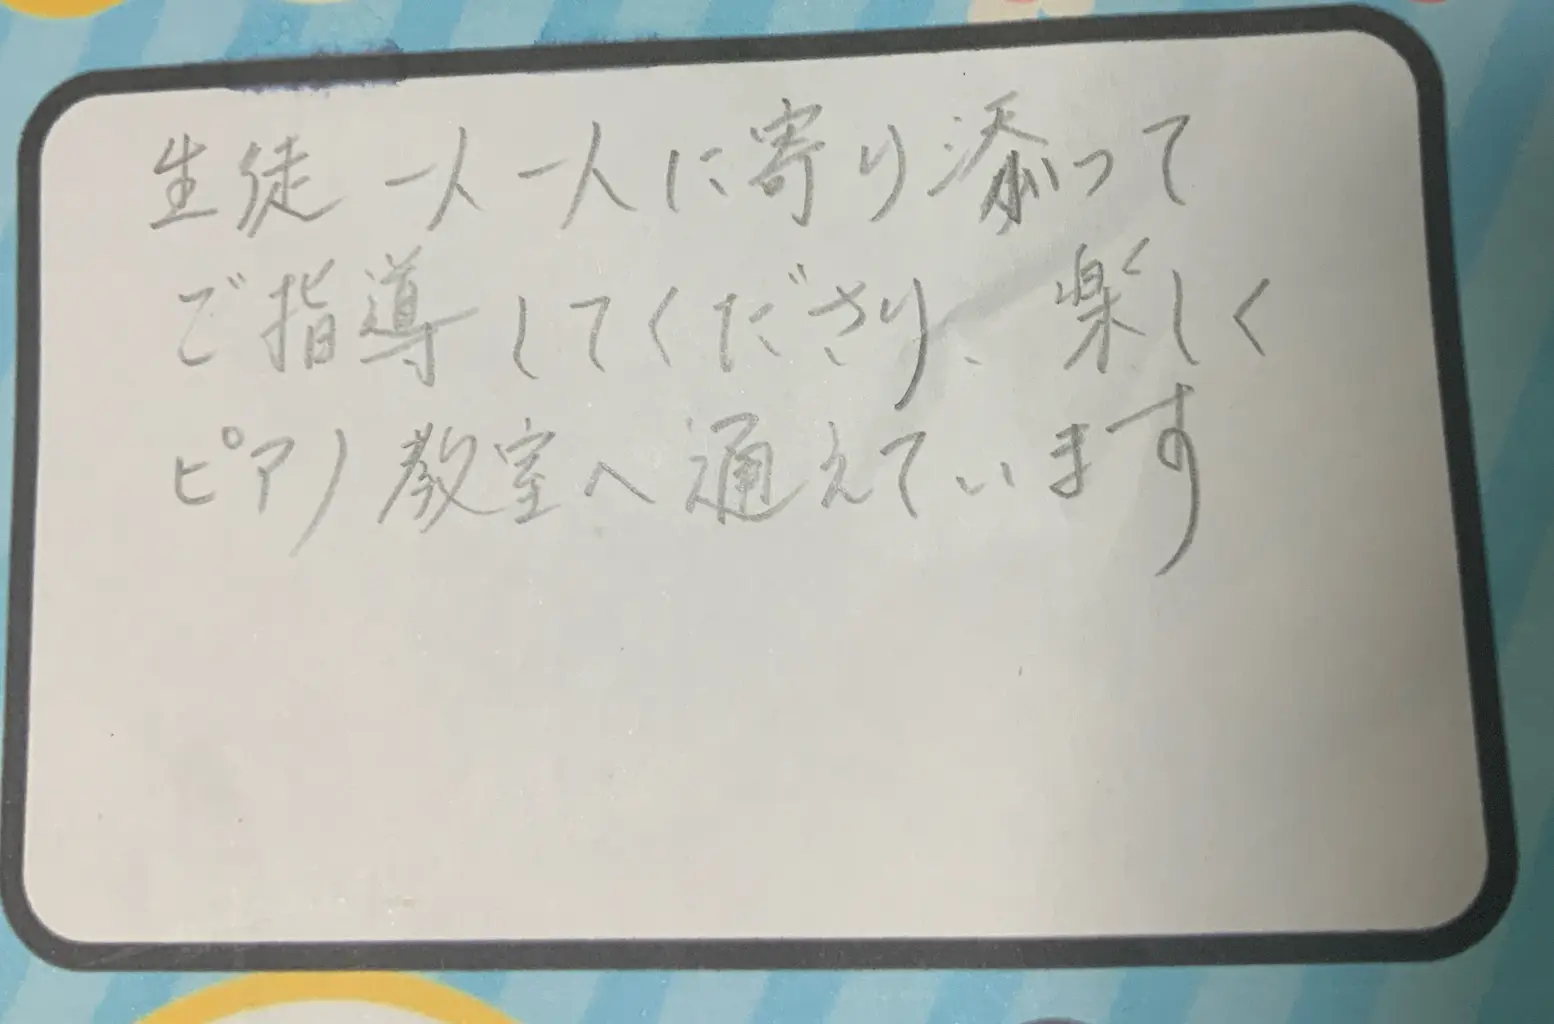 生徒一人一人に寄り添って
ご指導してくださり、楽しく
ピアノ教室へ通えています